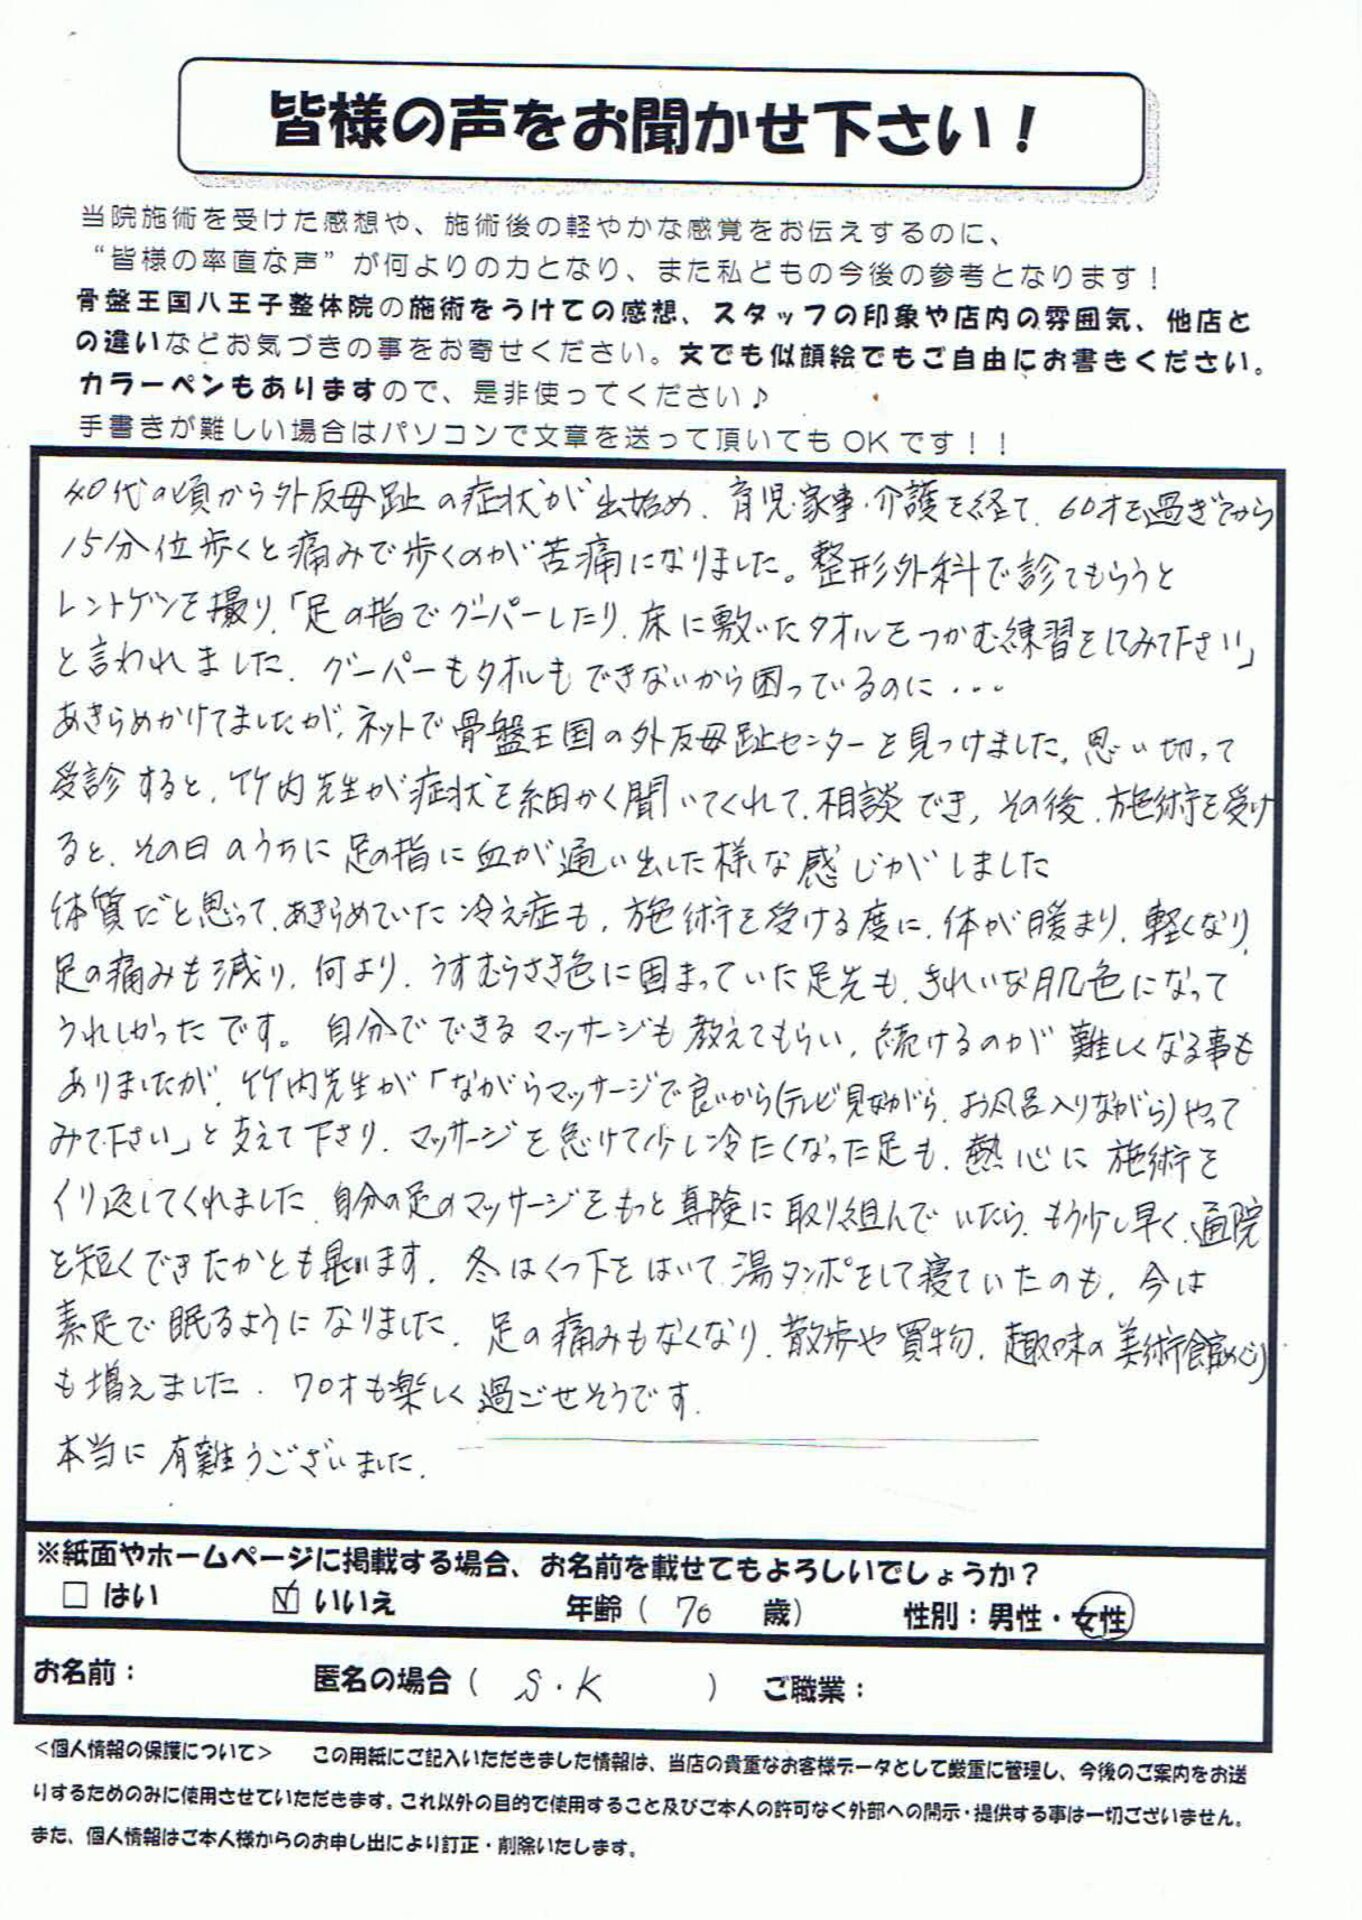 皆様の声をお聞かせ下さい！
当院施術を受けた感想や、施術後の軽やかな感覚をお伝えするのに、
“皆様の率直な声”が何よりの力となり、また私どもの今後の参考となります！
骨盤王国八王子整体院の施術をうけての感想、スタッフの印象や店内の雰囲気、他店と
の違いなどお気づきの事をお寄せください。文でも似顔絵でもご自由にお書きください。
カラーペンもありますので、是非使ってください♪
手書きが難しい場合はパソコンで文章を送って頂いてもOKです！！
40代の頃から外反母趾の症状が出始め、育児・家事・介護を経て、60才を過ぎてから
15分位歩くと痛みで歩くのが苦痛になりました。整形外科で診てもらうと
レントゲンを撮り、「足の指でグーパーしたり、床に敷いたタオルをつかむ練習をしてみて下さい」
と言われました。グーパーもタオルもできないから困っているのに・・・
あきらめかけてましたが、ネットで骨盤王国の外反母趾センターを見つけました。思い切って
受診すると、竹内先生が症状を細かく聞いてくれて、相談でき、その後、施術を受け
ると、その日のうちに足の指に血が通い出した様な感じがしました
体質だと思って、あきらめていた冷え症も、施術を受ける度に、体が暖まり、軽くなり、
足の痛みも減り、何より、うすむらさき色に固まっていた足先も、きれいな肌色になって
うれしかったです。自分でできるマッサージも教えてもらい、続けるのが難しくなる事も
ありましたが、竹内先生が「ながらマッサージで良いから(テレビ見ながら、お風呂入りながら)やって
みて下さい」と支えて下さり、マッサージを怠けて少し冷たくなった足も、熱心に施術を
くり返してくれました。自分の足のマッサージをもっと真険に取り組んでいたら、もう少し早く、通院
を短くできたかとも思います。冬はくつ下をはいて、湯タンポをして寝ていたのも、今は
素足で眠るようになりました。足の痛みもなくなり、散歩や買物、趣味の美術館めぐり
も増えました。70才も楽しく過ごせそうです。
本当に有難うございました。
※紙面やホームページに掲載する場合、お名前を載せてもよろしいでしょうか？
□はい　☑いいえ　年齢（ 70 歳）　性別：男性・女性
お名前：　匿名の場合（ S.K ）　ご職業：
＜個人情報の保護について＞　この用紙にご記入いただきました情報は、当店の貴重なお客様データとして厳重に管理し、今後のご案内をお送
りするためのみに使用させていただきます。これ以外の目的で使用すること及びご本人の許可なく外部への開示・提供する事は一切ございません。
また、個人情報はご本人様からのお申し出により訂正・削除いたします。